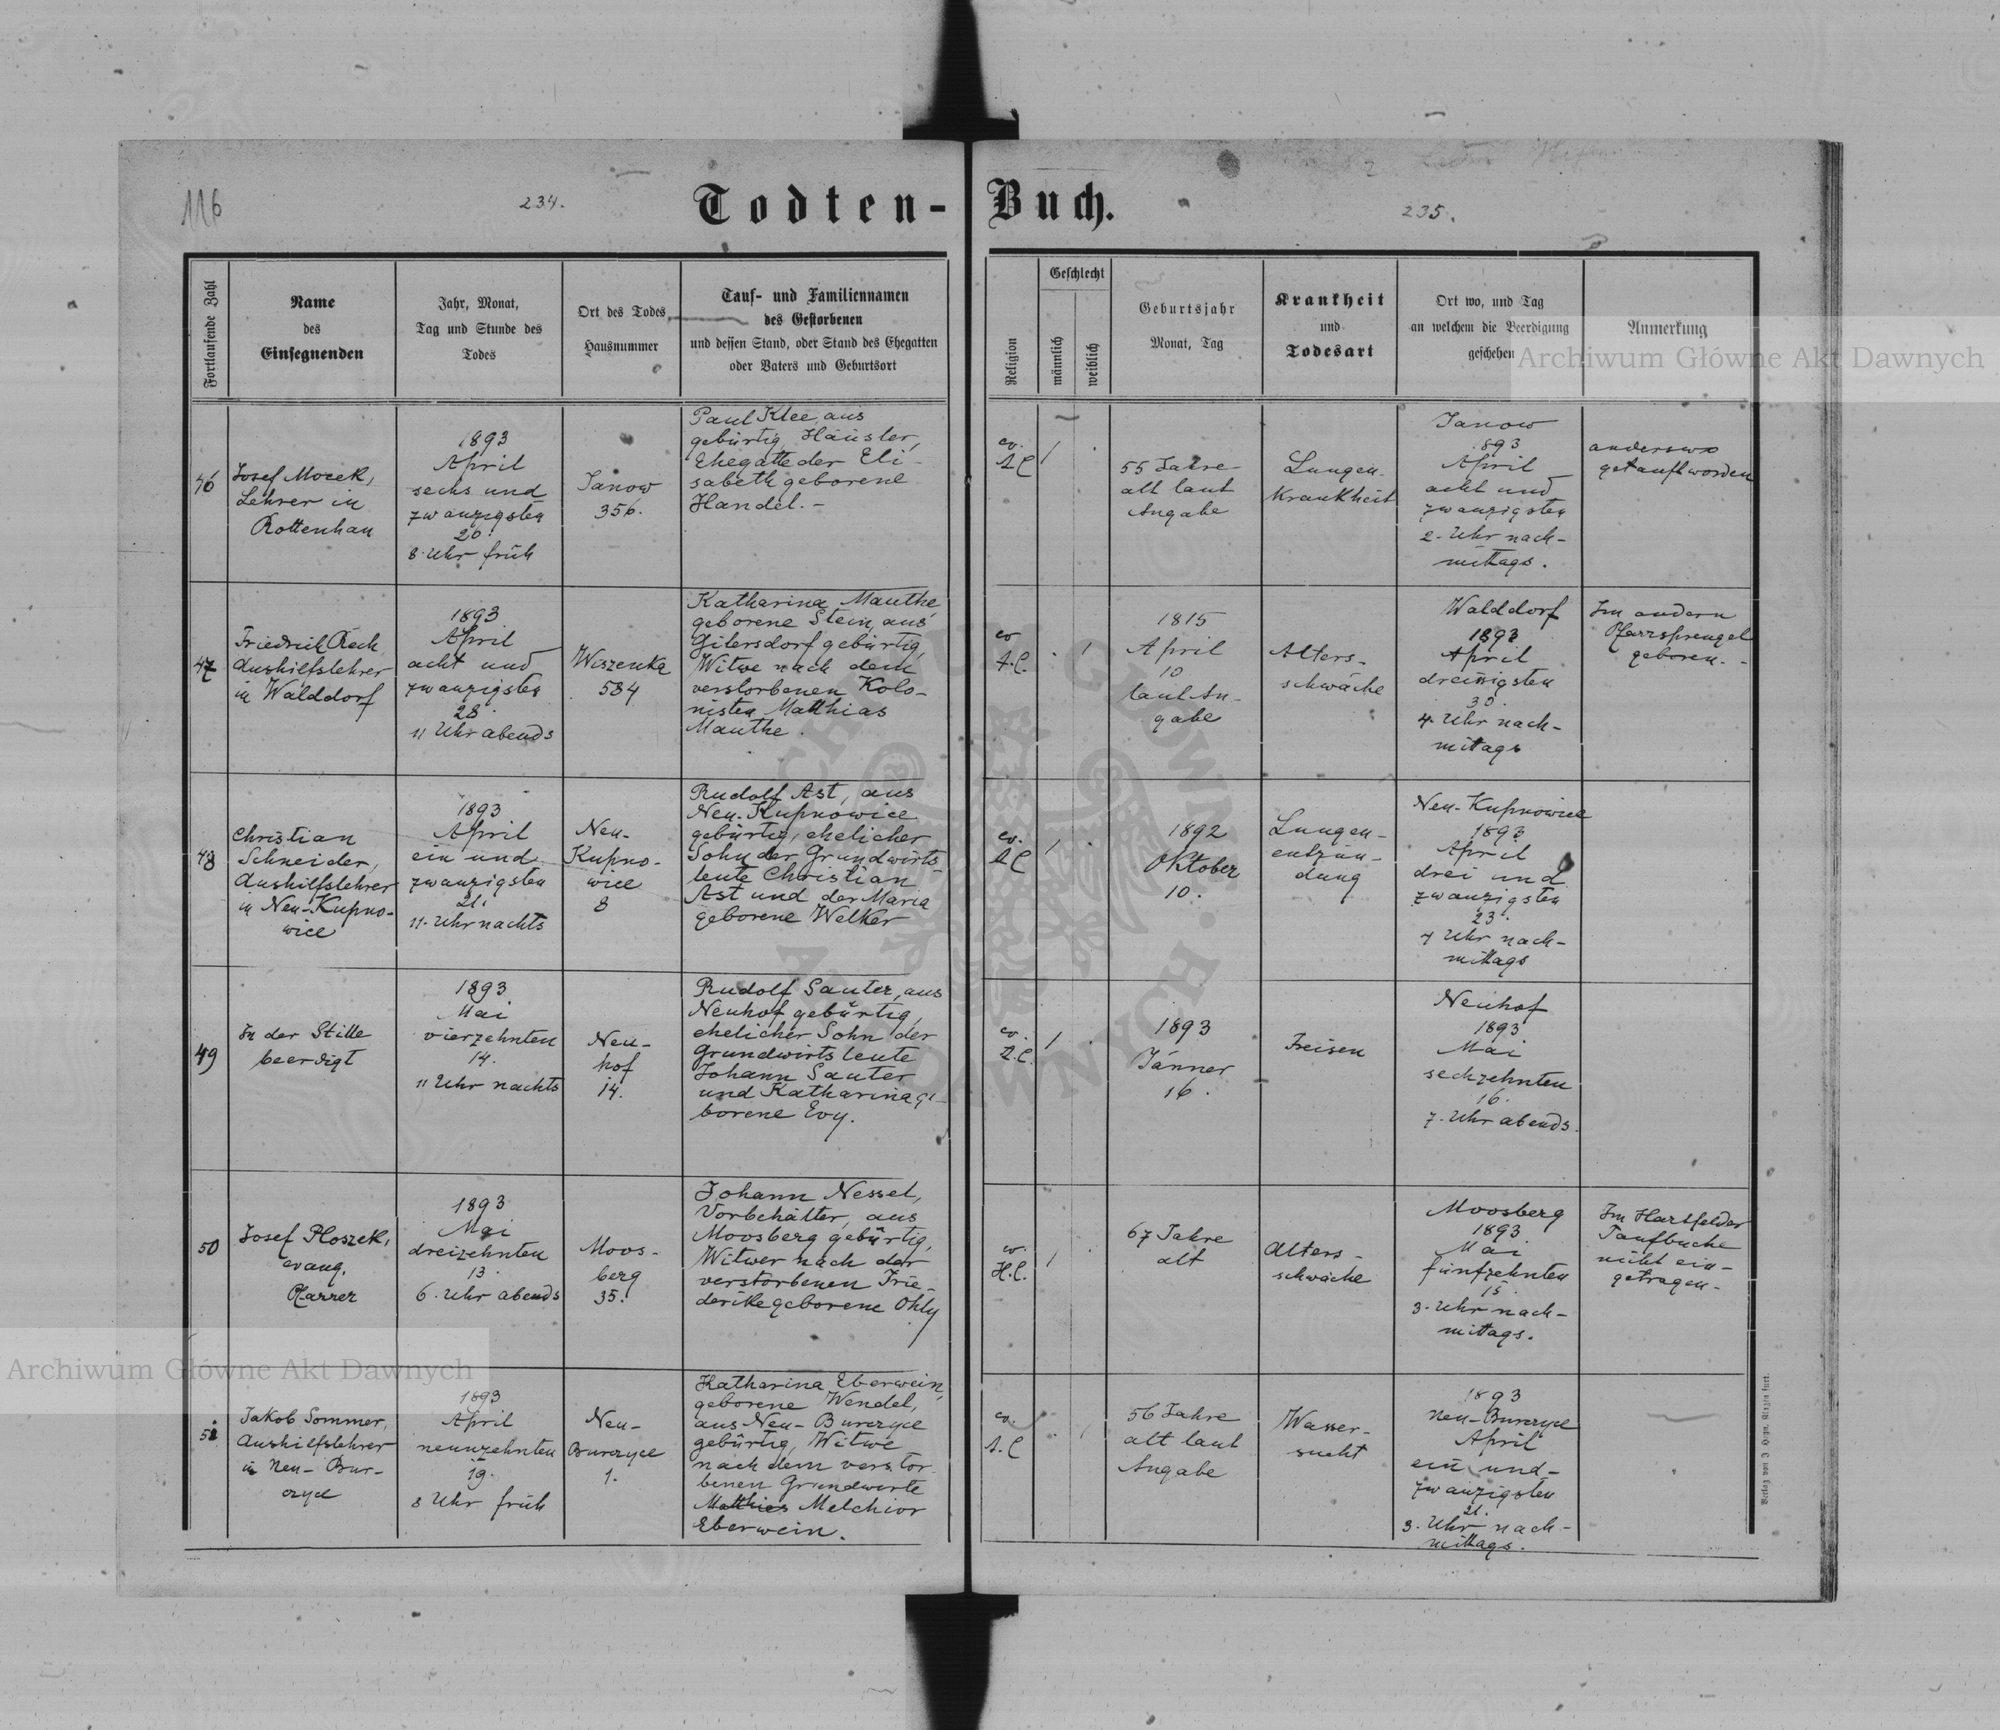 116
234.
Todten-Buch.
235.
Fortlaufende Zahl
Name
des
Einsegnenden
Jahr, Monat,
Tag und Stunde des
Todes
Ort des Todes
Hausnummer
Tauf- und Familiennamen
des Gestorbenen
und dessen Stand, oder Stand des Ehegatten
oder Vaters und Geburtsort
Religion
Geschlecht
männlich
weiblich
Geburtsjahr
Monat, Tag
Krankheit
und
Todesart
Ort wo, und Tag
an welchem die Beerdigung
geschehen
Anmerkung
Archiwum Główne Akt Dawnych
46
Josef Mocek,
Lehrer in
Rottenhan
1893
April
sechs und
zwanzigsten
26.
8. Uhr früh
Janow
356.
Paul Klee, aus
gebürtig, Häusler,
Ehegatte der Eli-
sabeth geborene
Handel. -
ev.
A.C.
1
55 Jahre
alt laut
Angabe
Lungen-
krankheit
Janow
893
April
acht und
zwanzigsten
2. Uhr nach-
mittags.
anderswo
getauft worden
47
Friedrich Rech
Aushilfslehrer
in Walddorf
1893
April
acht und
zwanzigsten
28.
11 Uhr abends
Wiszenka
584
Katharina Manthe,
geborene Stein, aus
Gitersdorf gebürtig,
Witwe nach dem
verstorbenen Kolo-
nisten Matthias
Manthe.
ev
A.C.
1
1815
April
10
laut An-
gabe
Alters-
schwäche
Walddorf
1893
April
dreißigsten
30.
4. Uhr nach-
mittags
Im andern
Pfarrsprengel
geboren. -
48
Christian
Schneider,
Aushilfslehrer
in Neu-Kupno-
wice
1893
April
ein und
zwanzigsten
21.
11. Uhr nachts
Neu-
Kupno-
wice
8
Rudolf Ast, aus
Neu-Kupnowice
gebürtig, ehelicher
Sohn der Grundwirts-
leute Christian
Ast und der Maria
geborene Welker
ev.
A.C
1
1892
Oktober
10.
Lungen-
entzün-
dung
Neu-Kupnowice
1893
April
drei und
zwanzigsten
23.
4 Uhr nach-
mittags
49
In der Stille
beerdigt
1893
Mai
vierzehnten
14.
11 Uhr nachts
Neu-
hof
14.
Rudolf Sauter, aus
Neuhof gebürtig,
ehelicher Sohn der
Grundwirtsleute
Johann Sauter
und Katharina ge-
borene Evy.
ev.
A.C.
1
1893
Jänner
16.
Freisen
Neuhof
1893
Mai
sechzehnten
16.
7. Uhr abends.
50
Josef Ploszek,
evang.
Pfarrer
1893
Mai
dreizehnten
13.
6. Uhr abends
Moos-
berg
35.
Johann Nessel,
Vorbehälter, aus
Moosberg gebürtig,
Witwer nach der
verstorbenen Frie-
derike geborene Ohly
ev.
H.C.
1
67 Jahre
alt
Alters-
schwäche
Moosberg
1893
Mai
fünfzehnten
15.
3. Uhr nach-
mittags.
Im Hartfelder
Taufbuche
nicht ein-
getragen. -
51
Jakob Sommer,
Aushilfslehrer
in Neu-Bur-
czyce
1893
April
neunzehnten
19.
8 Uhr früh
Neu-
Burczyce
1.
Katharina Eberwein,
geborene Wendel,
aus Neu-Burczyce
gebürtig, Witwe
nach dem verstor-
benen Grundwirte
Matthias Melchior
Eberwein.
ev.
A.C
1
56 Jahre
alt laut
Angabe
Wasser-
sucht
1893
Neu-Burczyce
April
ein und-
zwanzigsten
21.
3. Uhr nach-
mittags.
Archiwum Główne Akt Dawnych